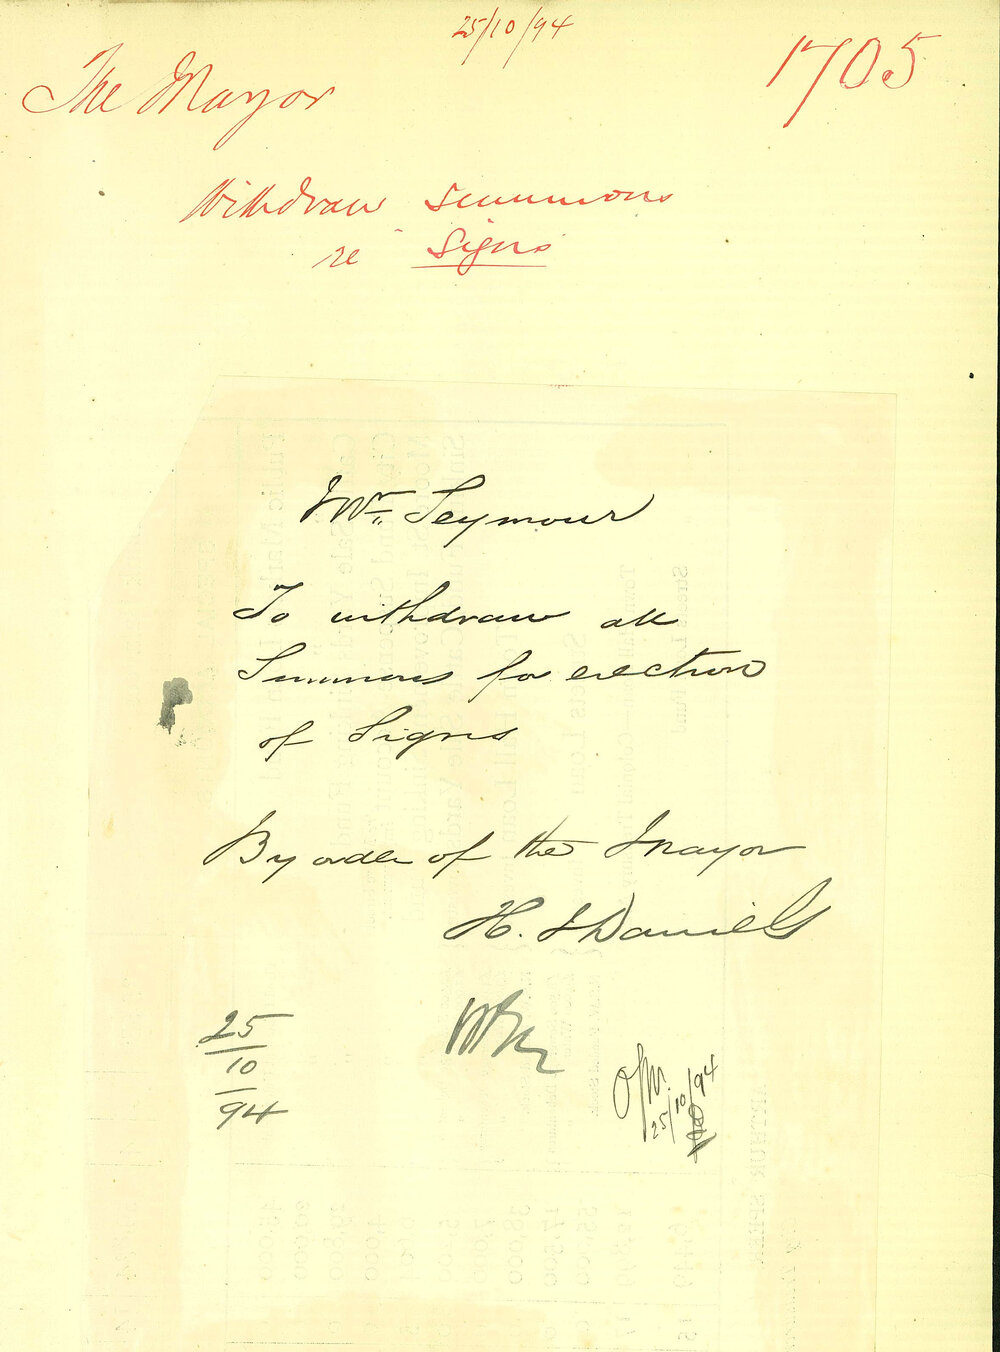 25/10/94
The Mayor
1705
Withdraw summons
re Signs
Mr Seymour
To withdraw all
Summons for erection
of Signs
By order of the Mayor
H. J Daniels
25
10
94
25/10/94